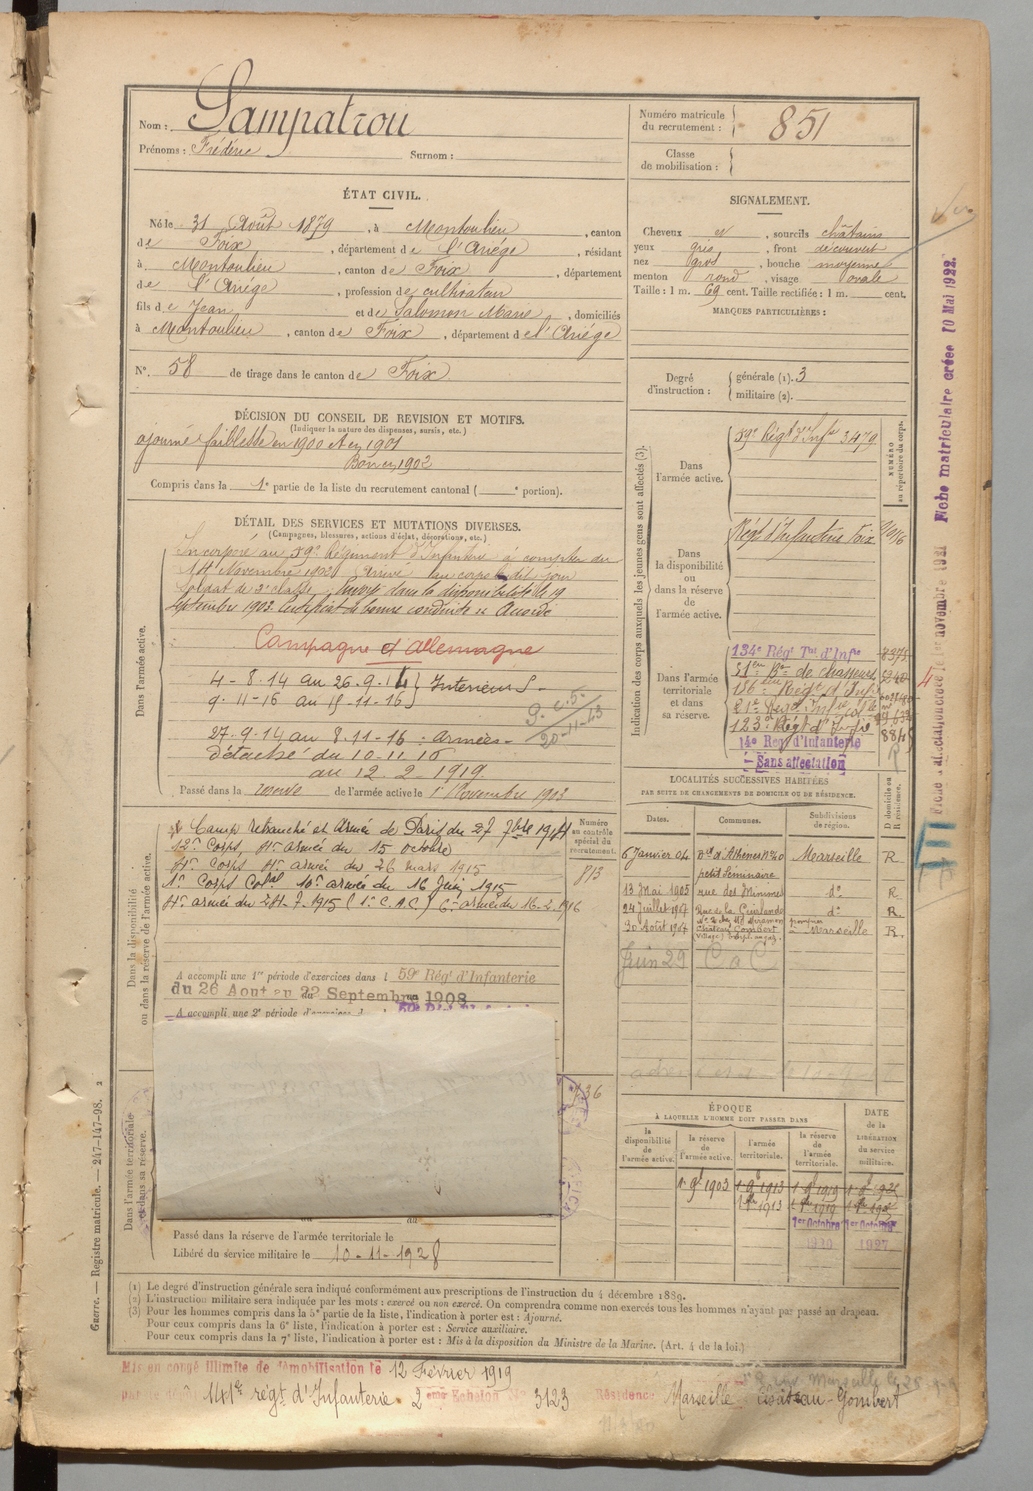 Nom : Lampatrou
Prénoms : Frédéric Surnom :
Numéro matricule du recrutement : 851
Classe de mobilisation :
ÉTAT CIVIL.
Né le 31 Août 1879, à Montoulieu, canton
de Foix, département de l'Ariège, résidant
à Montoulieu, canton de Foix, département
de l'Ariège, profession de cultivateur
fils de Jean et de Salomon Marie, domiciliés
à Montoulieu, canton de Foix, département de l'Ariège
N° 58 de tirage dans le canton de Foix
SIGNALEMENT.
Cheveux et, sourcils châtains
yeux gris, front découvert
nez gros, bouche moyenne
menton rond, visage ovale
Taille : 1 m. 69 cent. Taille rectifiée : 1 m. cent.
MARQUES PARTICULIÈRES :
Degré d'instruction : générale (1). 3
militaire (2).
DÉCISION DU CONSEIL DE REVISION ET MOTIFS.
(Indiquer la nature des dispenses, sursis, etc.)
ajourné faiblesse en 1900 et en 1901
Bon en 1902
Compris dans la 1e partie de la liste du recrutement cantonal ( e portion).
DÉTAIL DES SERVICES ET MUTATIONS DIVERSES.
(Campagnes, blessures, actions d'éclat, décorations, etc.)
Dans l'armée active.
Incorporé au 59e Régiment d'Infanterie à compter du
14 Novembre 1902 Arrivé au corps le dit jour
Soldat de 2e classe. Envoyé dans la disponibilité le 19
Septembre 1903. Certificat de bonne conduite " Accordé
Campagne d'Allemagne
4-8-14 au 26-9-14 } Intérieur S
9-11-16 au 15-11-16
27-9-14 au 8-11-16 : Armées
Détaché du 10-11-16
au 12-2-1919
Passé dans la réserve de l'armée active le 1er Novembre 1903
Indication des corps auxquels les jeunes gens sont affectés (3).
NUMÉRO au répertoire du corps.
Dans l'armée active.
59e Régt d'Infie 3479
Dans la disponibilité ou dans la réserve de l'armée active.
Régt d'Infanterie Foix
Dans l'armée territoriale et dans sa réserve.
134e Régt Tal d'Infie
51e Bon de chasseurs
156e Régt d'Infie
21e Régt Infie
123e Régt d'Infie
14e Reg d'Infanterie
Sans affectation
Fiche matriculaire créée 10 Mai 1922.
Dans la disponibilité ou dans la réserve de l'armée active.
Numéro au contrôle spécial du recrutement.
813
Camp retranché et Armée de Paris du 27 7bre 1914
12e Corps, 4e armée du 15 octobre
4e Corps 4e armée du 26 mars 1915
1er Corps Colal 10e armée du 16 Juin 1915
4e armée du 24-7-1915 (1er C.A.C) 6e armée du 16-2-1916
A accompli une 1re période d'exercices dans l 59e Régt d'Infanterie
du 26 Aout au 22 Septembre 1908
A accompli une 2e période d'exercices d
LOCALITÉS SUCCESSIVES HABITÉES
PAR SUITE DE CHANGEMENTS DE DOMICILE OU DE RÉSIDENCE.
D domicile ou R résidence.
Dates. Communes. Subdivisions de région.
6 Janvier 04 Bd d'Athènes N° 40 Marseille R
petit Séminaire
13 Mai 1905 rue des Minimes d° R
24 Juillet 1907 Rue de la Guirlande d° R
30 Août 1907 Château Gombert Marseille R
Juin 29 C à C
ÉPOQUE
À LAQUELLE L'HOMME DOIT PASSER DANS
la disponibilité de l'armée active.
la réserve de l'armée active.
l'armée territoriale.
la réserve de l'armée territoriale.
DATE de la LIBÉRATION du service militaire.
1er 9b 1903 1 9b 1913 1 9b 1919
1er Octobre 1er Octobre
1920 1927
Dans l'armée territoriale et dans sa réserve.
Passé dans la réserve de l'armée territoriale le
Libéré du service militaire le 10-11-1928
Guerre. — Registre matricule. — 247-147-98. 2
(1) Le degré d'instruction générale sera indiqué conformément aux prescriptions de l'instruction du 4 décembre 1889.
(2) L'instruction militaire sera indiquée par les mots : exercé ou non exercé. On comprendra comme non exercés tous les hommes n'ayant pas passé au drapeau.
(3) Pour les hommes compris dans la 5e partie de la liste, l'indication à porter est : Ajourné.
Pour ceux compris dans la 6e liste, l'indication à porter est : Service auxiliaire.
Pour ceux compris dans la 7e liste, l'indication à porter est : Mis à la disposition du Ministre de la Marine. (Art. 4 de la loi.)
Mis en congé illimité de démobilisation le 12 Février 1919
141e régt d'Infanterie 2eme Echelon No 3123 Résidence Marseille Château-Gombert